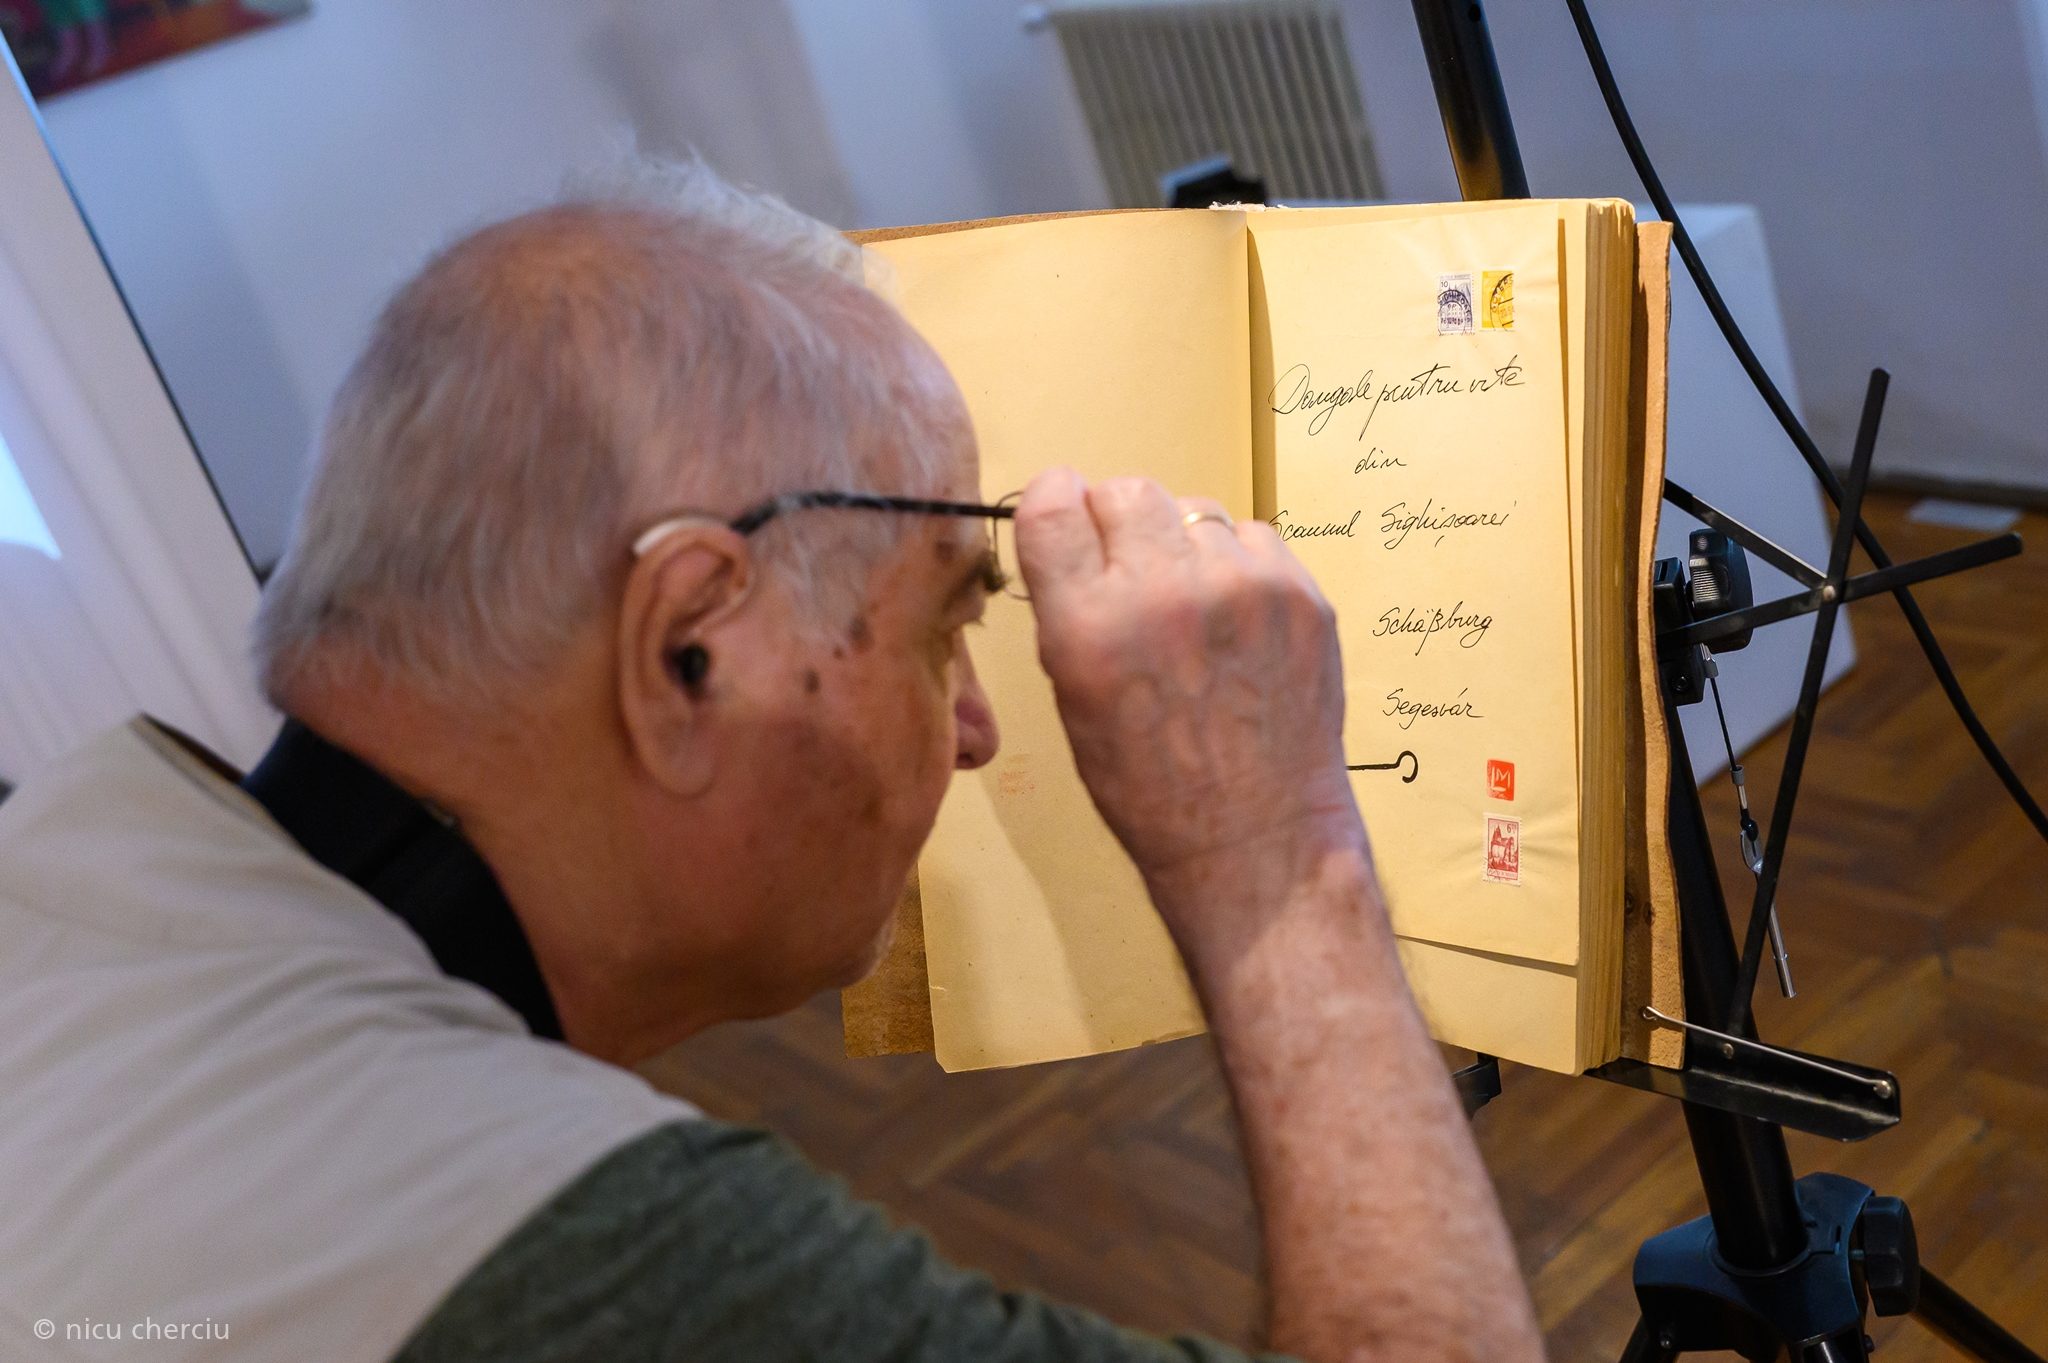 10
Dangale pentru vite
din
Scaunul Sighișoarei
Schäßburg
Segesvár
LM
© nicu cherciu